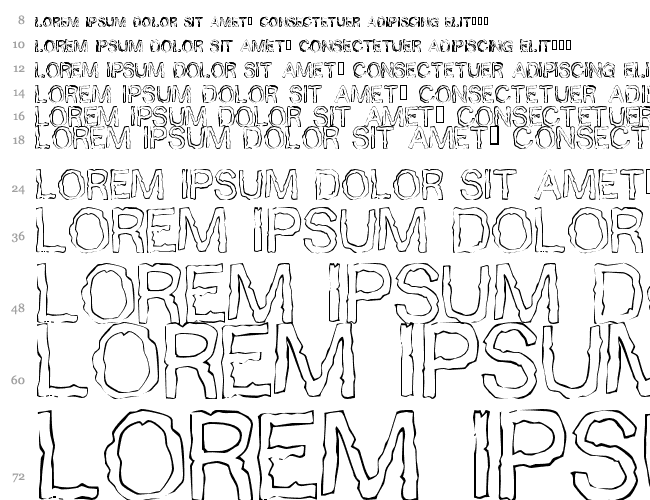 8 LOREM IPSUM DOLOR SIT AMET▯ CONSECTETUER ADIPISCING ELIT▯▯▯
10 LOREM IPSUM DOLOR SIT AMET▯ CONSECTETUER ADIPISCING ELIT▯▯▯
12 LOREM IPSUM DOLOR SIT AMET▯ CONSECTETUER ADIPISCING ELI
14 LOREM IPSUM DOLOR SIT AMET▯ CONSECTETUER ADI
16 LOREM IPSUM DOLOR SIT AMET▯ CONSECTETUER
18 LOREM IPSUM DOLOR SIT AMET▯ CONSECT
24 LOREM IPSUM DOLOR SIT AMET▯
36 LOREM IPSUM DOLOR
48 LOREM IPSUM DO
60 LOREM IPSUM
72 LOREM IPSU